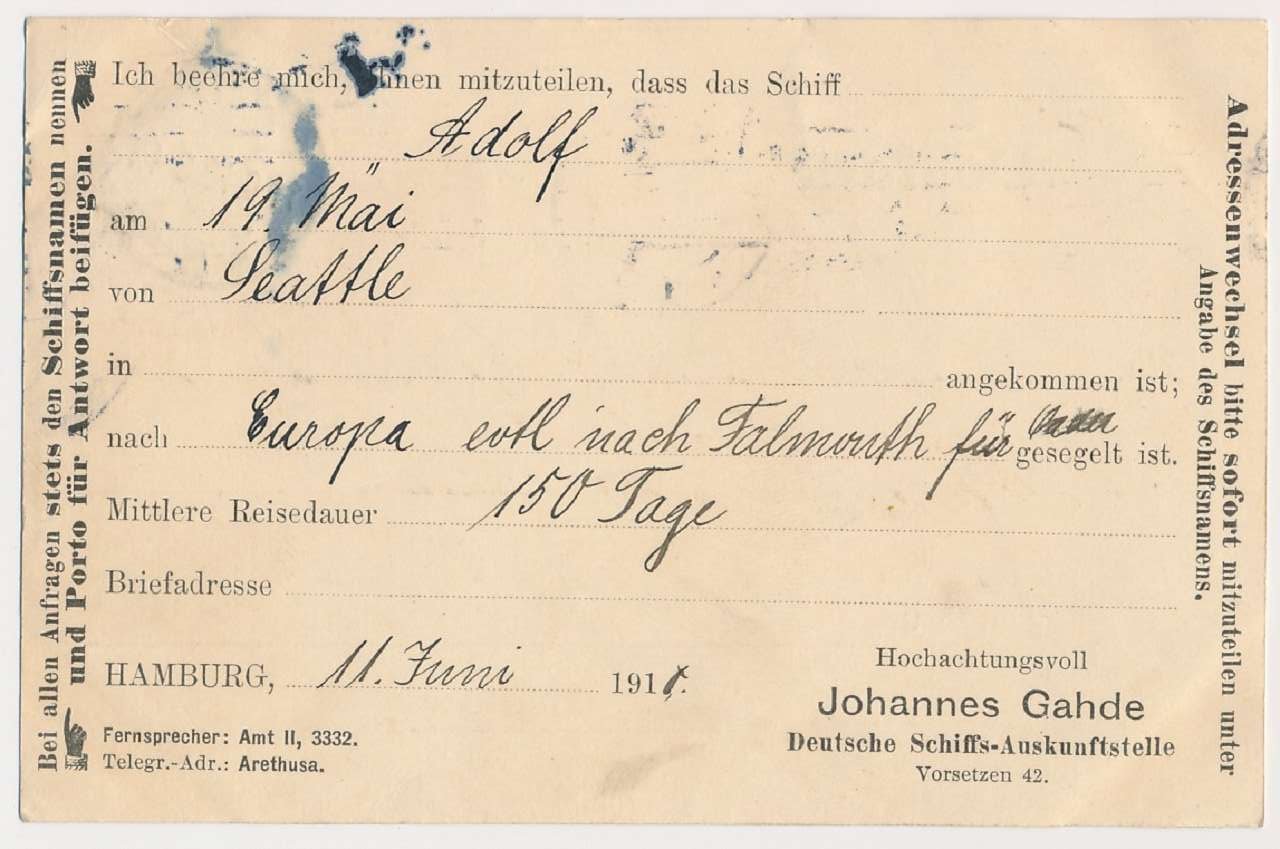 Bei allen Anfragen stets den Schiffsnamen nennen
und Porto für Antwort beifügen.
Ich beehre mich, Ihnen mitzuteilen, dass das Schiff
Adolf
am 19. Mäi
von Seattle
in angekommen ist;
nach Europa evtl nach Falmouth für gesegelt ist.
Mittlere Reisedauer 150 Tage
Briefadresse
HAMBURG, 11. Juni 191
Fernsprecher: Amt II, 3332.
Telegr.-Adr.: Arethusa.
Hochachtungsvoll
Johannes Gahde
Deutsche Schiffs-Auskunftstelle
Vorsetzen 42.
Adressenwechsel bitte sofort mitzuteilen unter
Angabe des Schiffsnamens.